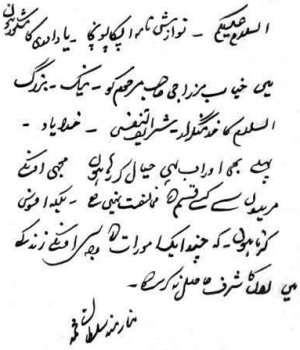 السلام علیکم ۔ نوازش نامہ آپکا پہونچا ۔ یاد آوری کا مشکور ہوں
میں جناب مرزا جی صاحب مرحوم کو ۔ نیک ۔ بزرگ
اسلام کا خدمتگذار ۔ شریف النفس ۔ خدا یاد ۔
پہلے بھی اور اب بھی خیال کرتا ہوں مجھے انکے
مریدوں سے کسی قسم کی مخالفت نہیں ہے ۔ بلکہ افسوس
کرتا ہوں ۔ کہ چند ایک امورات کی وجہ سے انکی زندگی
میں انکا شرف حاصل نہ کر سکا ۔
نیازمند سلطان محمد